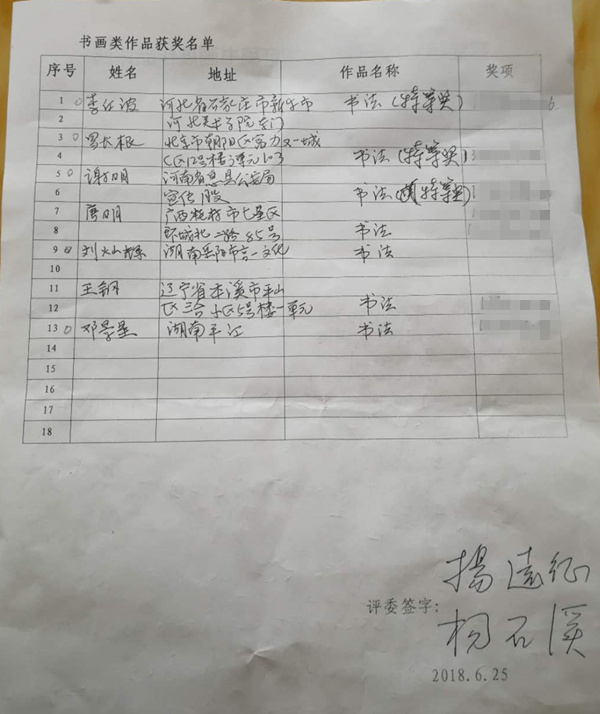 书画类作品获奖名单
序号 姓名 地址 作品名称 奖项
1 李任波 河北省石家庄市新乐市 书法(特等奖)
2 河北美术学院东门
3 罗长根 北京市朝阳区富力又一城
4 C区12号楼3单元103 书法(特等奖)
5 谢明 河南省息县公安局
6 宣传股 书法(特等奖)
7 唐明 广西桂林市七星区
8 环城北二路85号 书法
9 刘火山 湖南岳阳市 文化 书法
10
11 王钢 辽宁省本溪市平山
12 区三合小区5号楼一单元 书法
13 邓景星 湖南平江 书法
14
15
16
17
18
杨远征
评委签字:
杨石溪
2018.6.25